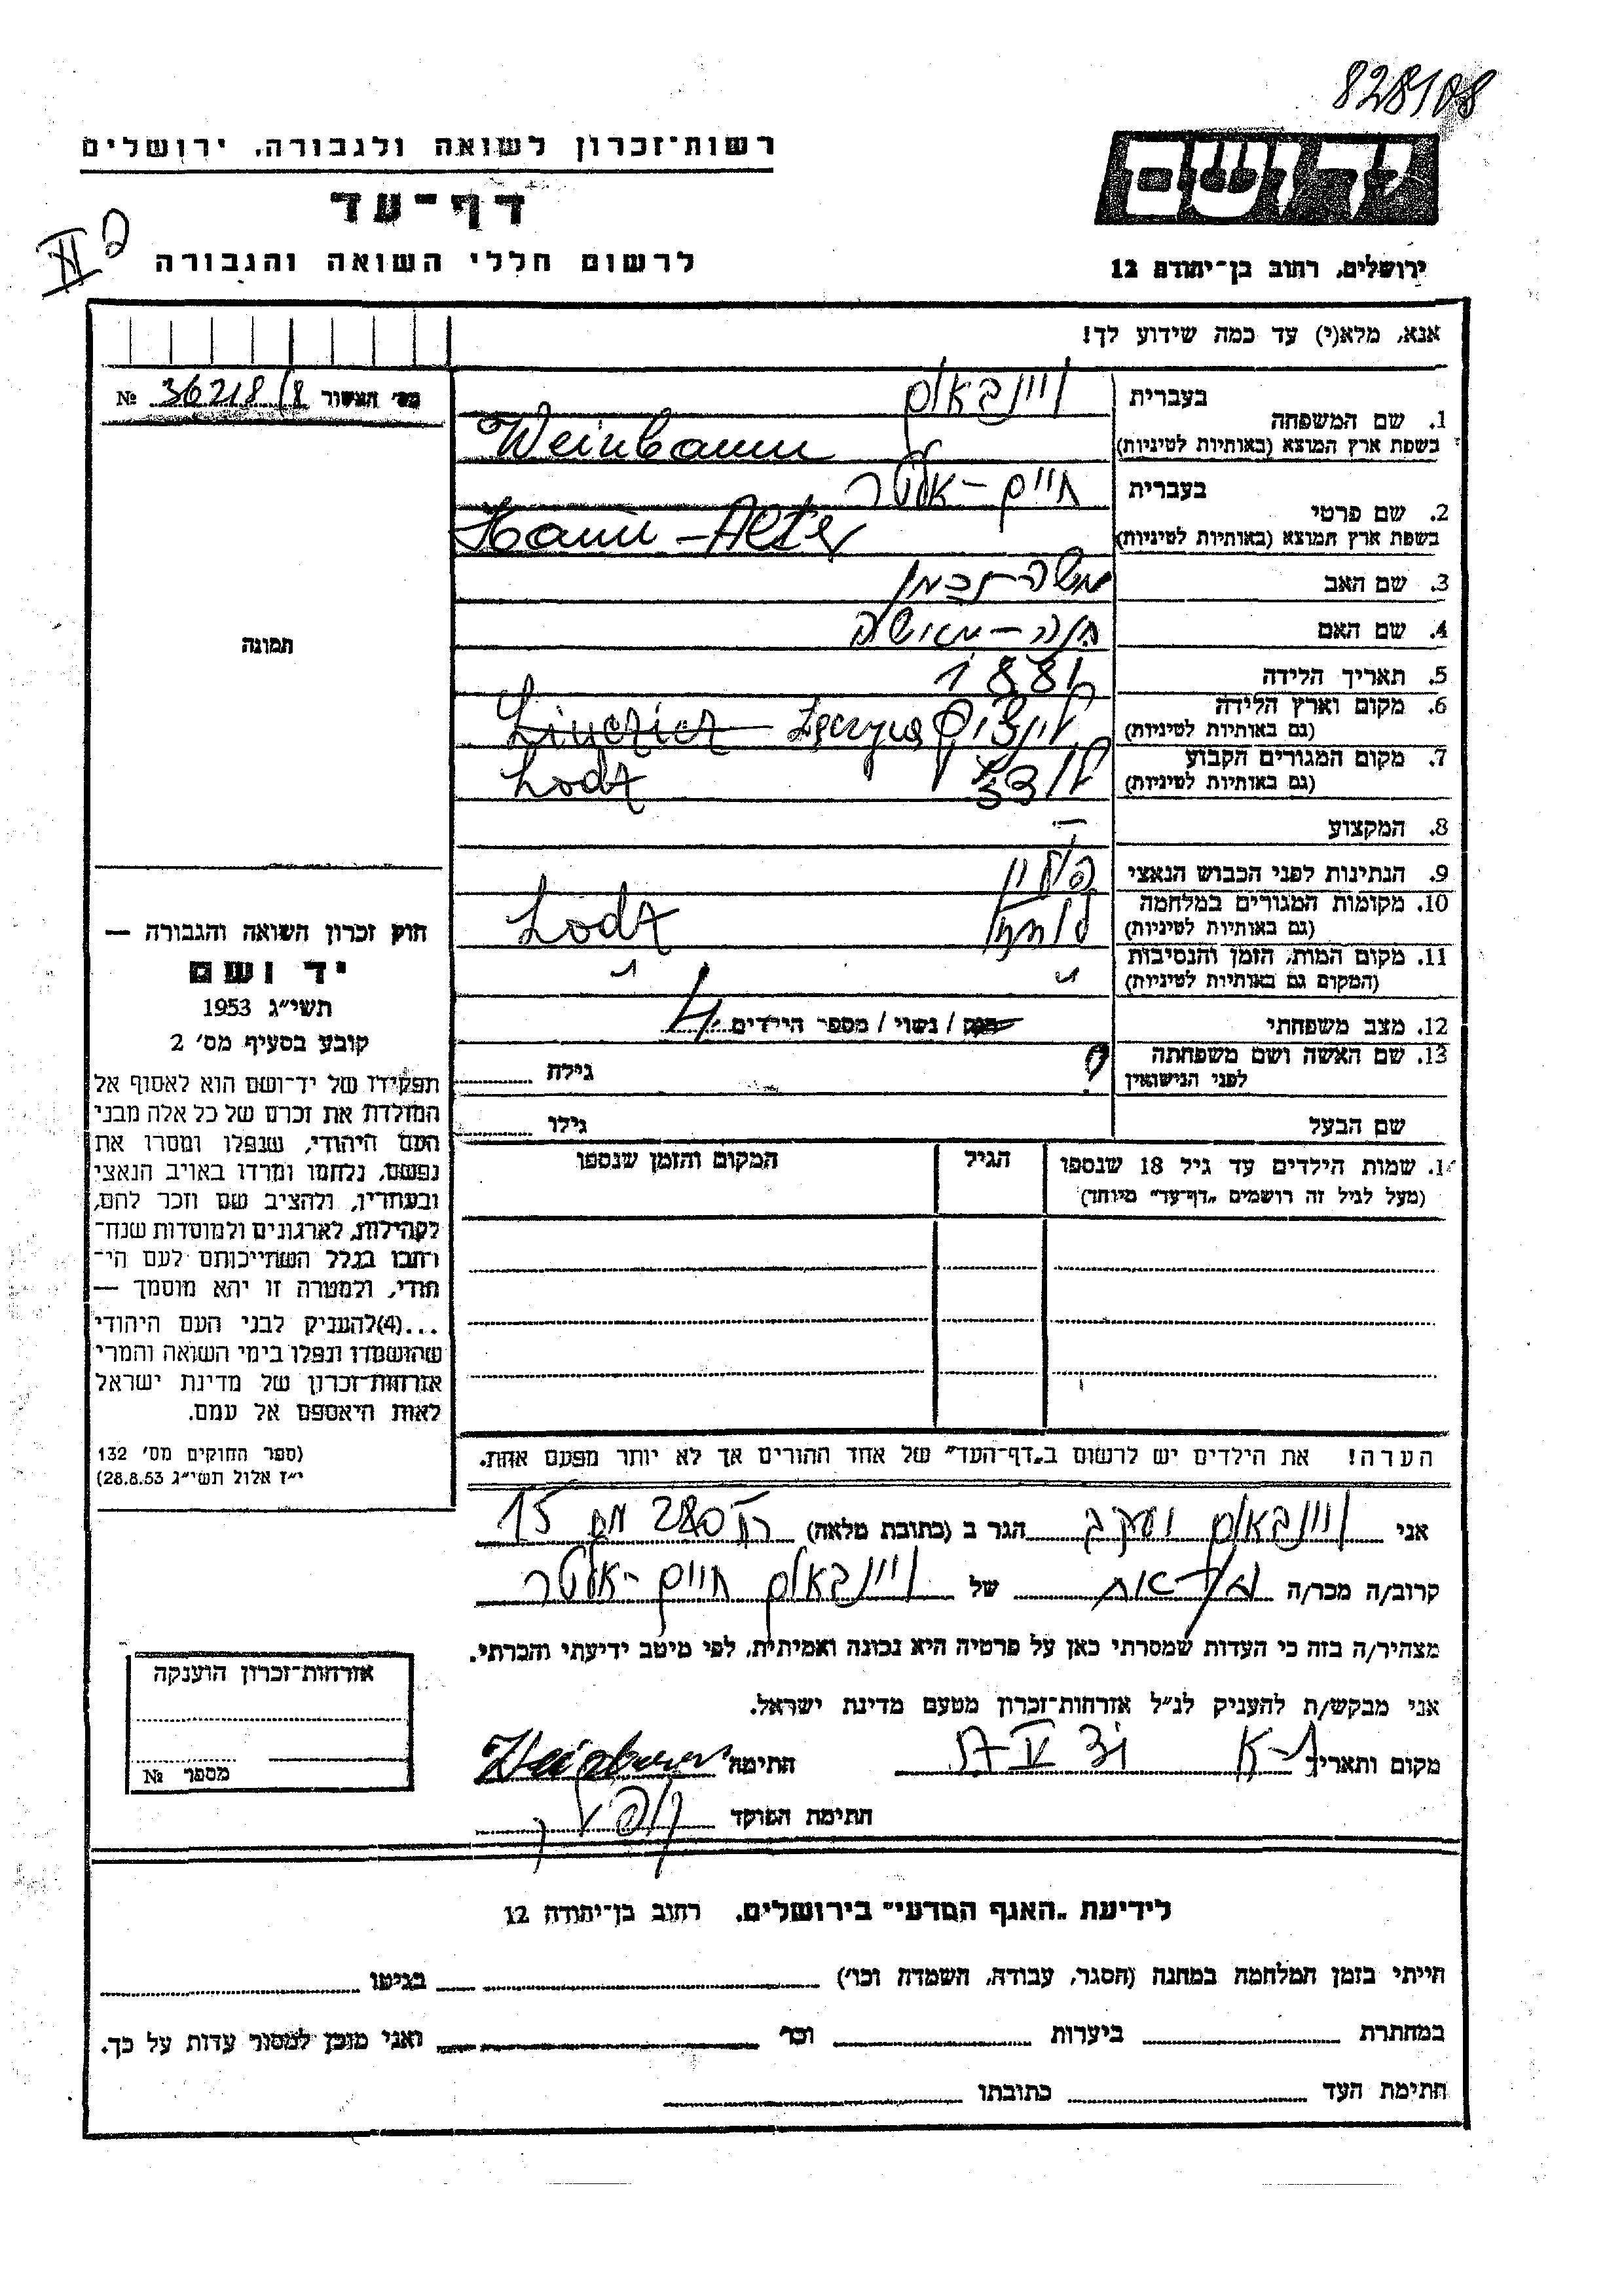 828108
רשות־זכרון לשואה ולגבורה, ירושלים
דף־עד
לרשום חללי השואה והגבורה
ידושם
ירושלים, רחוב בן־יהודה 12
אנא, מלא(י) עד כמה שידוע לך!
מס׳ האשור 36218/8 №
1. שם המשפחה
בעברית ויינבאום
בשפת ארץ המוצא (באותיות לטיניות) Weinbaum
2. שם פרטי
בעברית חיים - אלטר
בשפת ארץ המוצא (באותיות לטיניות) - Alter
3. שם האב משה-נחמן
4. שם האם חנה -
5. תאריך הלידה 1881
6. מקום וארץ הלידה
(גם באותיות לטיניות)
7. מקום המגורים הקבוע לודז
(גם באותיות לטיניות) Lodz
8. המקצוע –
9. הנתינות לפני הכבוש הנאצי פולין
10. מקומות המגורים במלחמה
(גם באותיות לטיניות) Lodz
11. מקום המות, הזמן והנסיבות
(המקום גם באותיות לטיניות)
12. מצב משפחתי רווק / נשוי / מספר הילדים 4
13. שם האשה ושם משפחתה ?
לפני הנישואין
גילה
שם הבעל
גילו
תמונה
חוק זכרון השואה והגבורה —
יד ושם
תשי״ג 1953
קובע בסעיף מס׳ 2
תפקידו של יד־ושם הוא לאסוף אל
המולדת את זכרם של כל אלה מבני
העם היהודי, שנפלו ומסרו את
נפשם, נלחמו ומרדו באויב הנאצי
ובעוזריו, ולהציב שם וזכר להם,
לקהילות, לארגונים ולמוסדות שנח־
רבו בגלל השתייכותם לעם הי־
הודי, ולמטרה זו יהא מוסמך —
...(4)להעניק לבני העם היהודי
שהושמדו ונפלו בימי השואה והמרי
אזרחות־זכרון של מדינת ישראל
לאות היאספם אל עמם.
(ספר החוקים מס׳ 132
י״ז אלול תשי״ג 28.8.53)
שמות הילדים עד גיל 18 שנספו
(מעל לגיל זה רושמים „דף־עד״ מיוחד)
הגיל
המקום והזמן שנספו
הערה! את הילדים יש לרשום ב„דף־העד״ של אחד ההורים אך לא יותר מפעם אחת.
אני ויינבאום יעקב הגר ב (כתובת מלאה) רח 280 מס 15
קרוב/ה מכר/ה של ויינבאום חיים - אלטר
מצהיר/ה בזה כי העדות שמסרתי כאן על פרטיה היא נכונה ואמיתית, לפי מיטב ידיעתי והכרתי.
אני מבקש/ת להעניק לנ״ל אזרחות־זכרון מטעם מדינת ישראל.
מקום ותאריך חתימה
חתימת הפוקד
אזרחות־זכרון הוענקה
מספר №
לידיעת „האגף המדעי״ בירושלים, רחוב בן־יהודה 12
הייתי בזמן המלחמה במחנה (הסגר, עבודה, השמדה וכו׳) בגיטו
במחתרת ביערות וכו׳ ואני מוכן למסור עדות על כך.
חתימת העד כתובתו